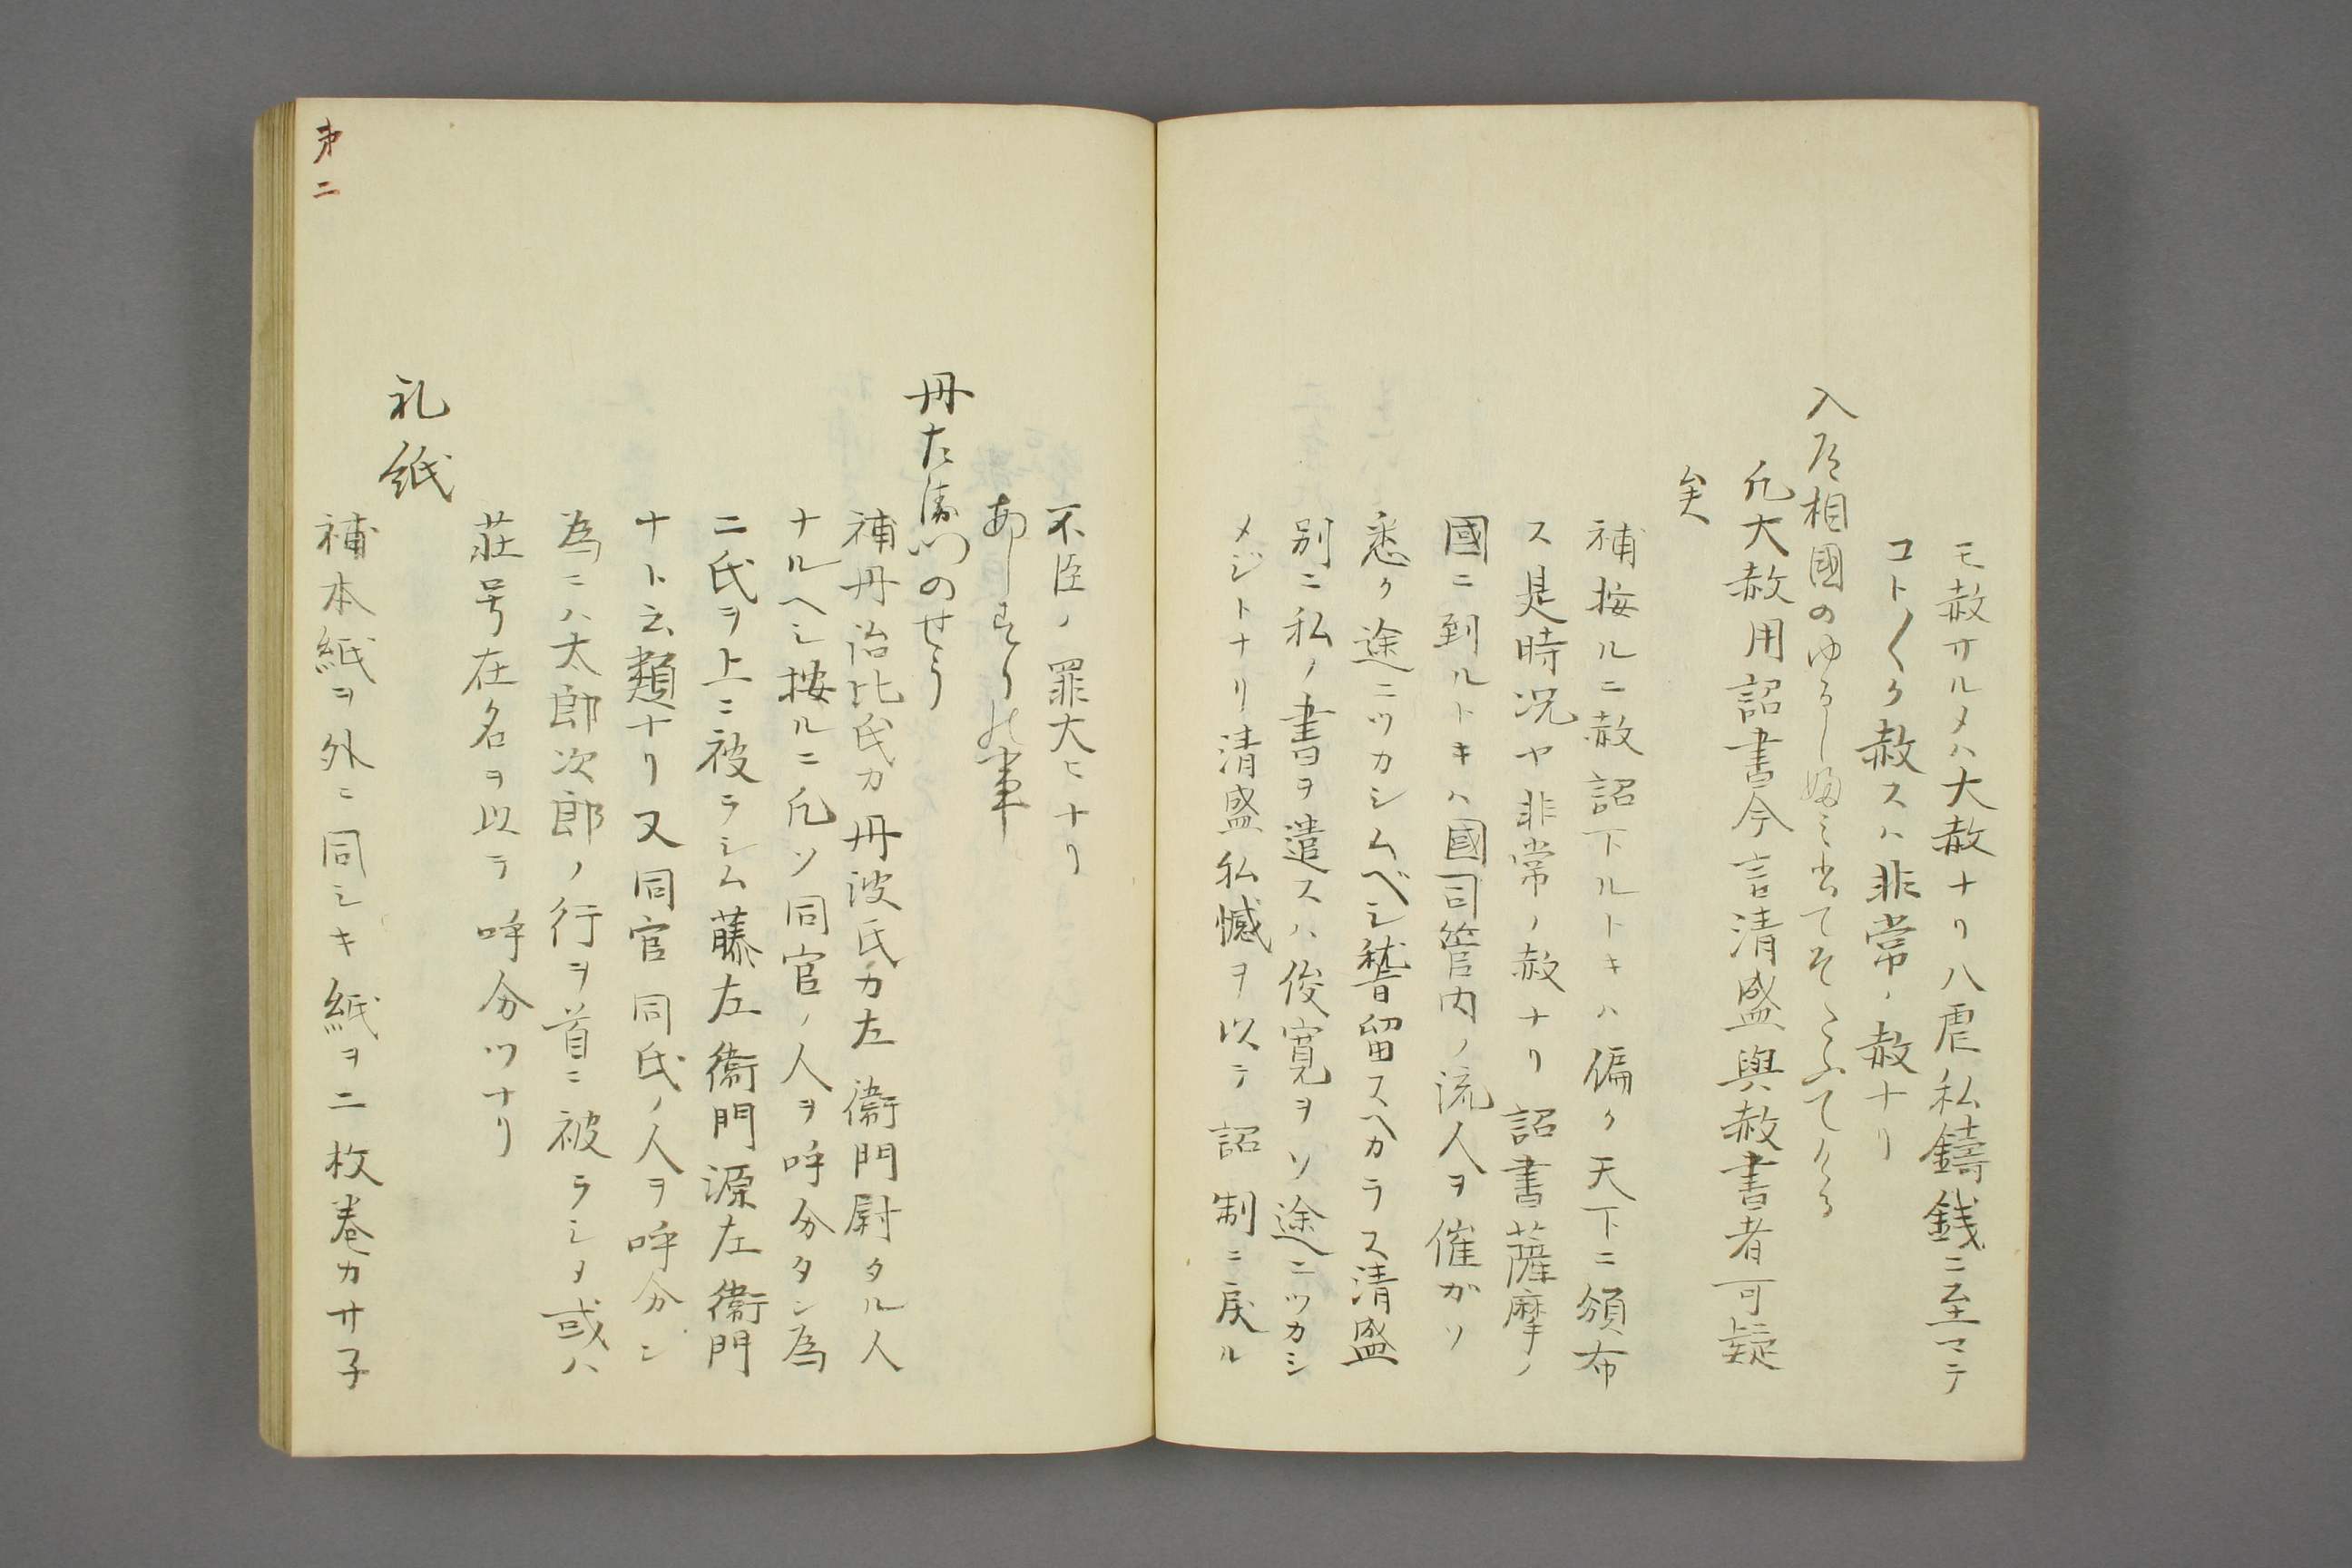 モ赦サルメハ大赦ナリ八虐私鑄銭ニ至マテ
コト〱ク赦スハ非常ノ赦ナリ
入道相國のゆるし
凡大赦用詔書今言清盛與赦書者可疑
矣
補按ルニ赦詔下ルトキハ偏ク天下ニ頒布
ス是時況ヤ非常ノ赦ナリ詔書薩摩ノ
國ニ到ルトキハ國司管内ノ流人ヲ催カソ
悉ク途ニツカシムベシ稽留スヘカラス清盛
別ニ私ノ書ヲ遣スハ俊寛ヲソ途ニツカシ
メジトナリ清盛私憾ヲ以テ詔制ニ戻ル
不臣ノ罪大ヒナリ
あしすりの事
丹左衛門のせう
補丹治比氏カ丹波氏カ左衛門尉タル人
ナルヘシ按ルニ凡ソ同官ノ人ヲ呼分タン為
ニ氏ヲ上ニ被ラシム藤左衛門源左衛門
ナト云類ナリ又同官同氏ノ人ヲ呼分ン
為ニハ太郎次郎ノ行ヲ首ニ被ラシメ或ハ
荘号在名ヲ以テ呼分ツナリ
礼紙
補本紙ヲ外ニ同シキ紙ヲ二枚巻カサ子
第二